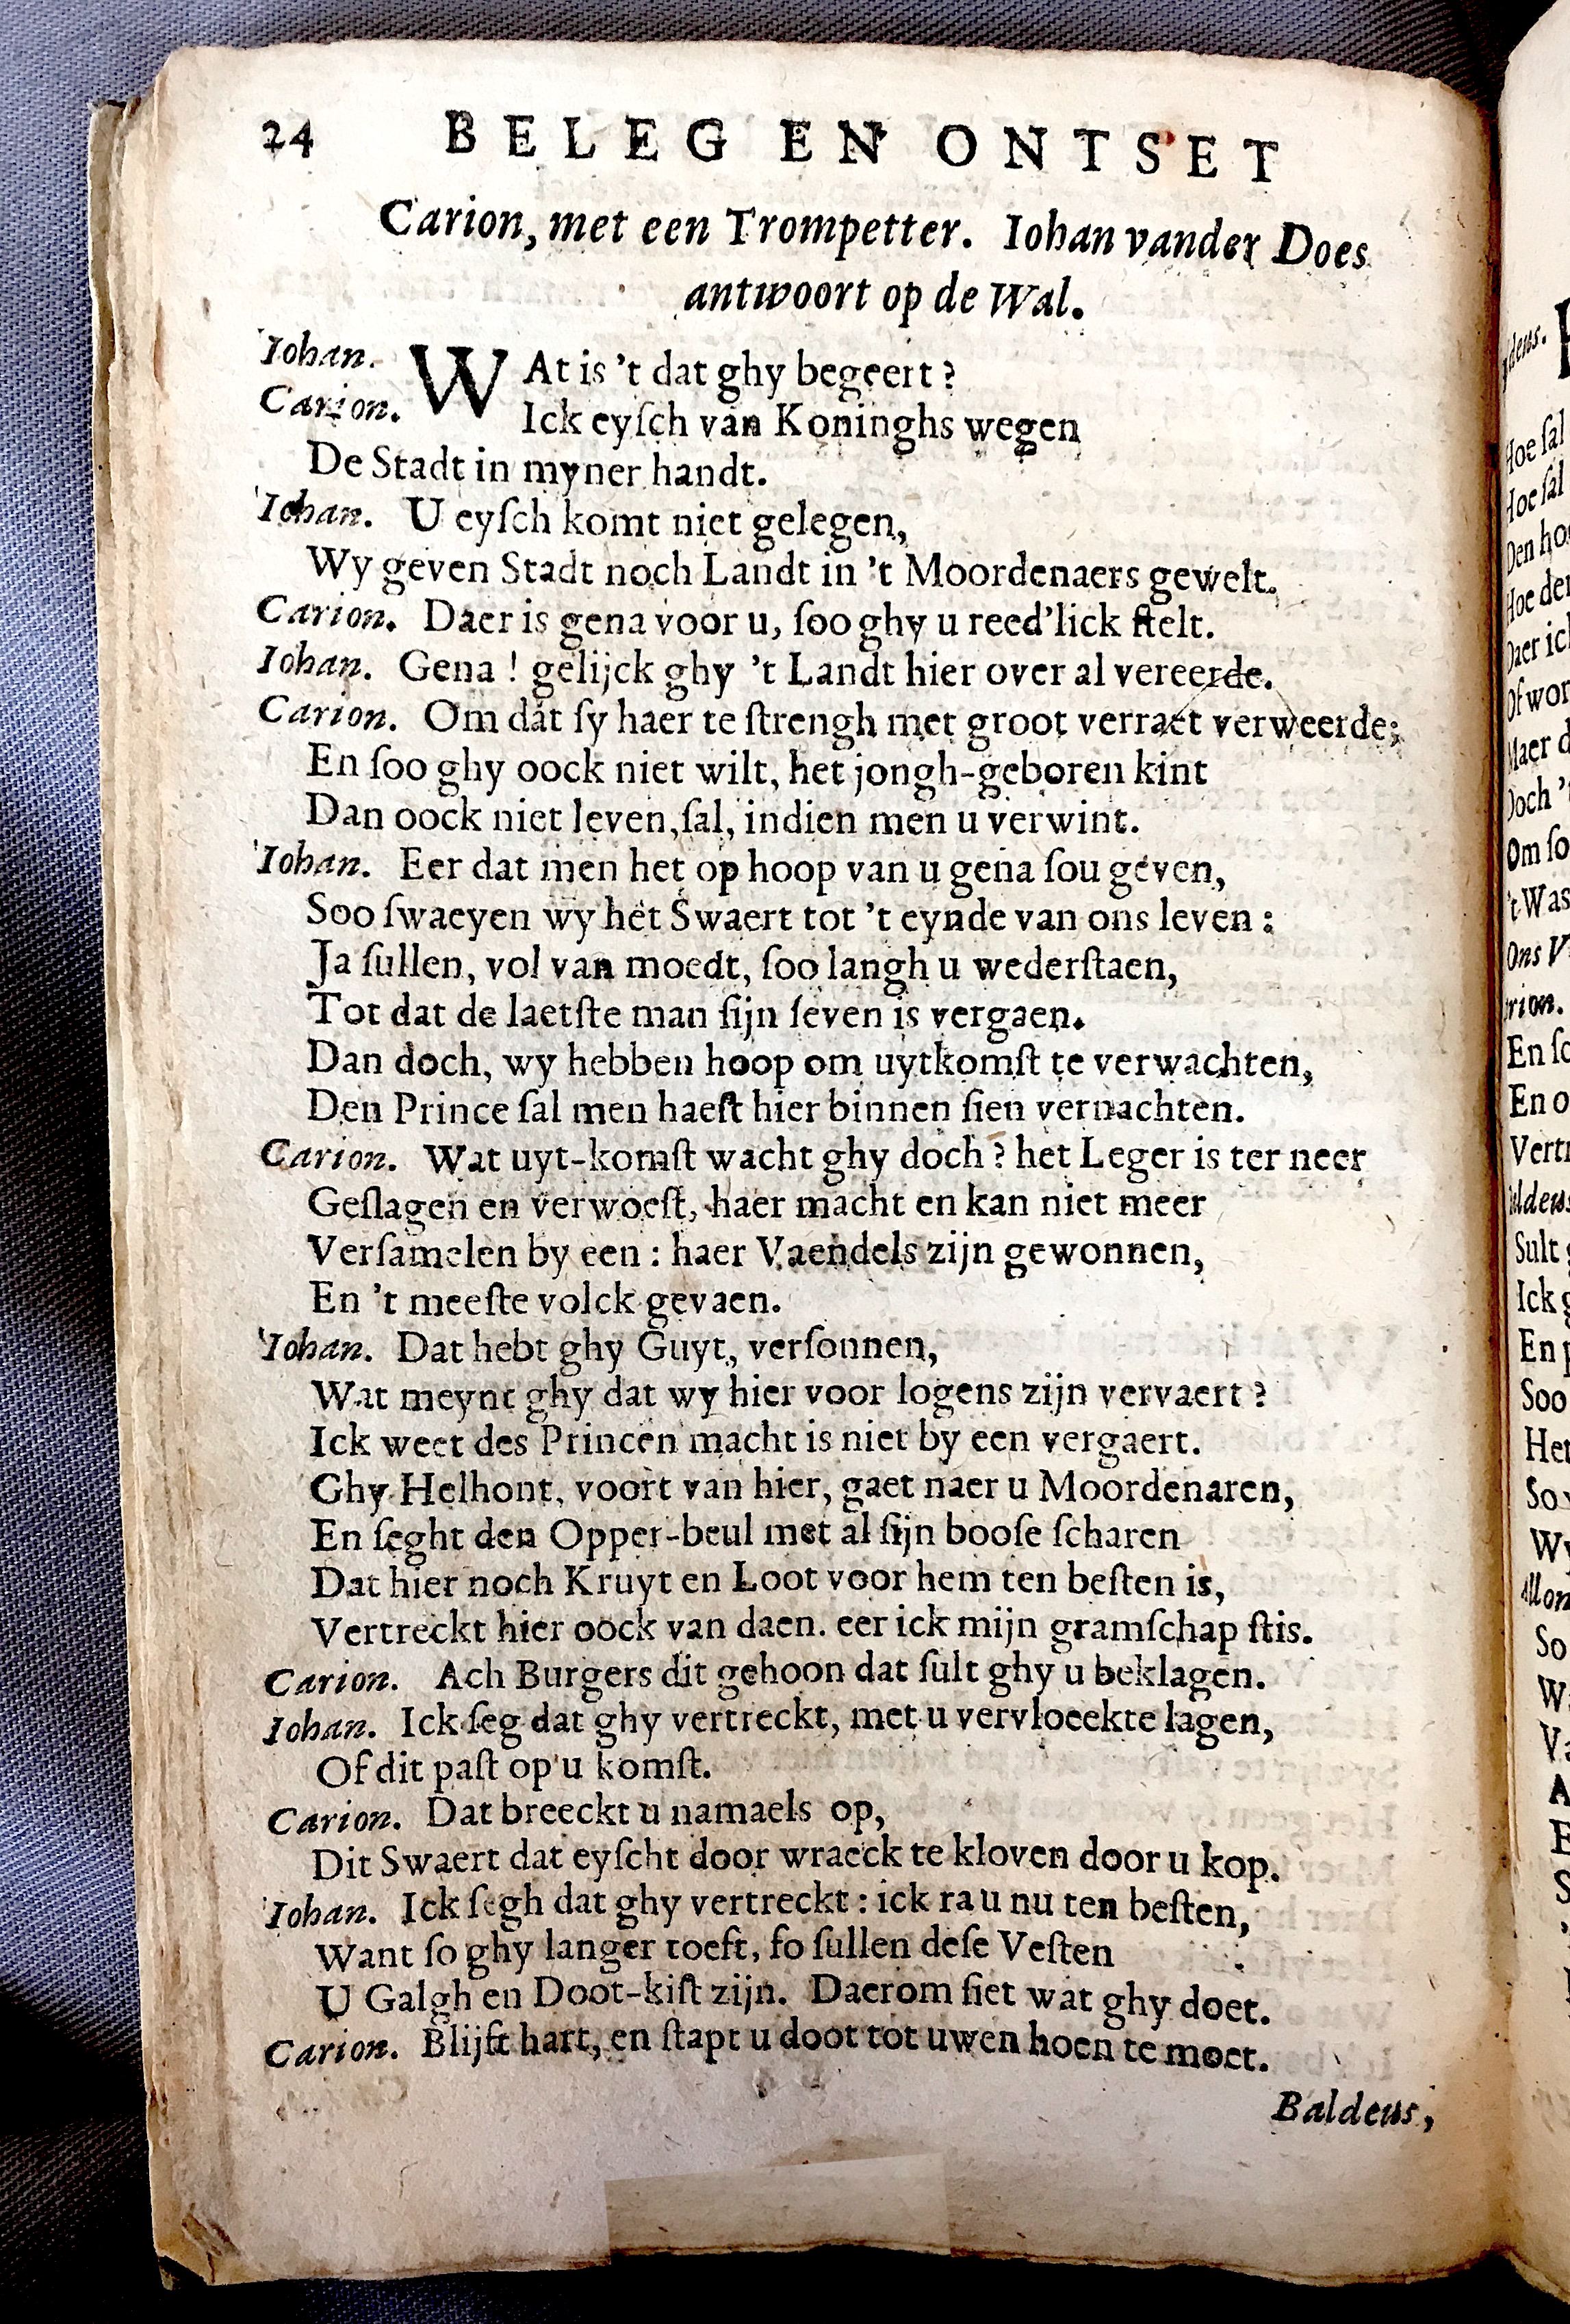 24 BELEG EN ONTSET
Carion, met een Trompetter. Iohan vander Does
antwoort op de Wal.
Iohan. WAt is 't dat ghy begeert?
Carion. Ick eyſch van Koninghs wegen
De Stadt in myner handt.
Iohan. U eyſch komt niet gelegen,
Wy geven Stadt noch Landt in 't Moordenaers gewelt.
Carion. Daer is gena voor u, ſoo ghy u reed'lick ſtelt.
Iohan. Gena! gelijck ghy 't Landt hier over al vereerde.
Carion. Om dat ſy haer te ſtrengh met groot verraet verweerde;
En ſoo ghy oock niet wilt, het jongh-geboren kint
Dan oock niet leven, ſal, indien men u verwint.
Iohan. Eer dat men het op hoop van u gena ſou geven,
Soo ſwaeyen wy het Swaert tot 't eynde van ons leven:
Ja ſullen, vol van moedt, ſoo langh u wederſtaen,
Tot dat de laetſte man ſijn leven is vergaen.
Dan doch, wy hebben hoop om uytkomſt te verwachten,
Den Prince ſal men haeſt hier binnen ſien vernachten.
Carion. Wat uyt-komſt wacht ghy doch? het Leger is ter neer
Geſlagen en verwoeſt, haer macht en kan niet meer
Verſamelen by een: haer Vaendels zijn gewonnen,
En 't meeſte volck gevaen.
Iohan. Dat hebt ghy Guyt, verſonnen,
Wat meynt ghy dat wy hier voor logens zijn vervaert?
Ick weet des Princen macht is niet by een vergaert.
Ghy Helhont, voort van hier, gaet naer u Moordenaren,
En ſeght den Opper-beul met al ſijn booſe ſcharen
Dat hier noch Kruyt en Loot voor hem ten beſten is,
Vertreckt hier oock van daen. eer ick mijn gramſchap ſtis.
Carion. Ach Burgers dit gehoon dat ſult ghy u beklagen.
Iohan. Ick ſeg dat ghy vertreckt, met u vervloeekte lagen,
Of dit paſt op u komſt.
Carion. Dat breeckt u namaels op,
Dit Swaert dat eyſcht door wraeck te kloven door u kop.
Iohan. Ick ſegh dat ghy vertreckt: ick ra u nu ten beſten,
Want ſo ghy langer toeft, ſo ſullen deſe Veſten
U Galgh en Doot-kiſt zijn. Daerom ſiet wat ghy doet.
Carion. Blijft hart, en ſtapt u doot tot uwen hoen te moet.
Baldeus,